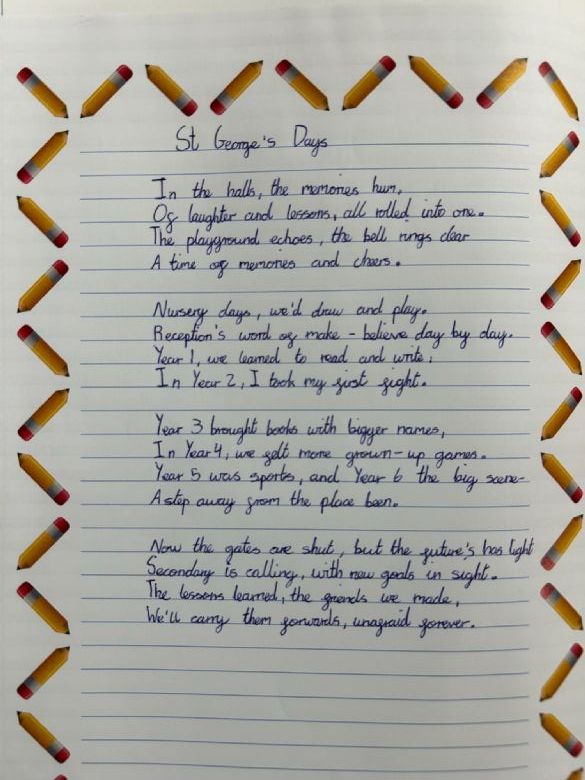 St George's Days
In the halls, the memories hum,
Of laughter and lessons, all rolled into one.
The playground echoes, the bell rings clear
A time of memories and cheers.
Nursery days, we'd draw and play.
Reception's word of make-believe day by day.
Year 1, we learned to read and write,
In Year 2, I took my first fight.
Year 3 brought books with bigger names,
In Year 4, we felt more grown-up games.
Year 5 was sports, and Year 6 the big scene-
A step away from the place been.
Now the gates are shut, but the future's has light
Secondary is calling, with new goals in sight.
The lessons learned, the friends we made,
We'll carry them forwards, unafraid forever.